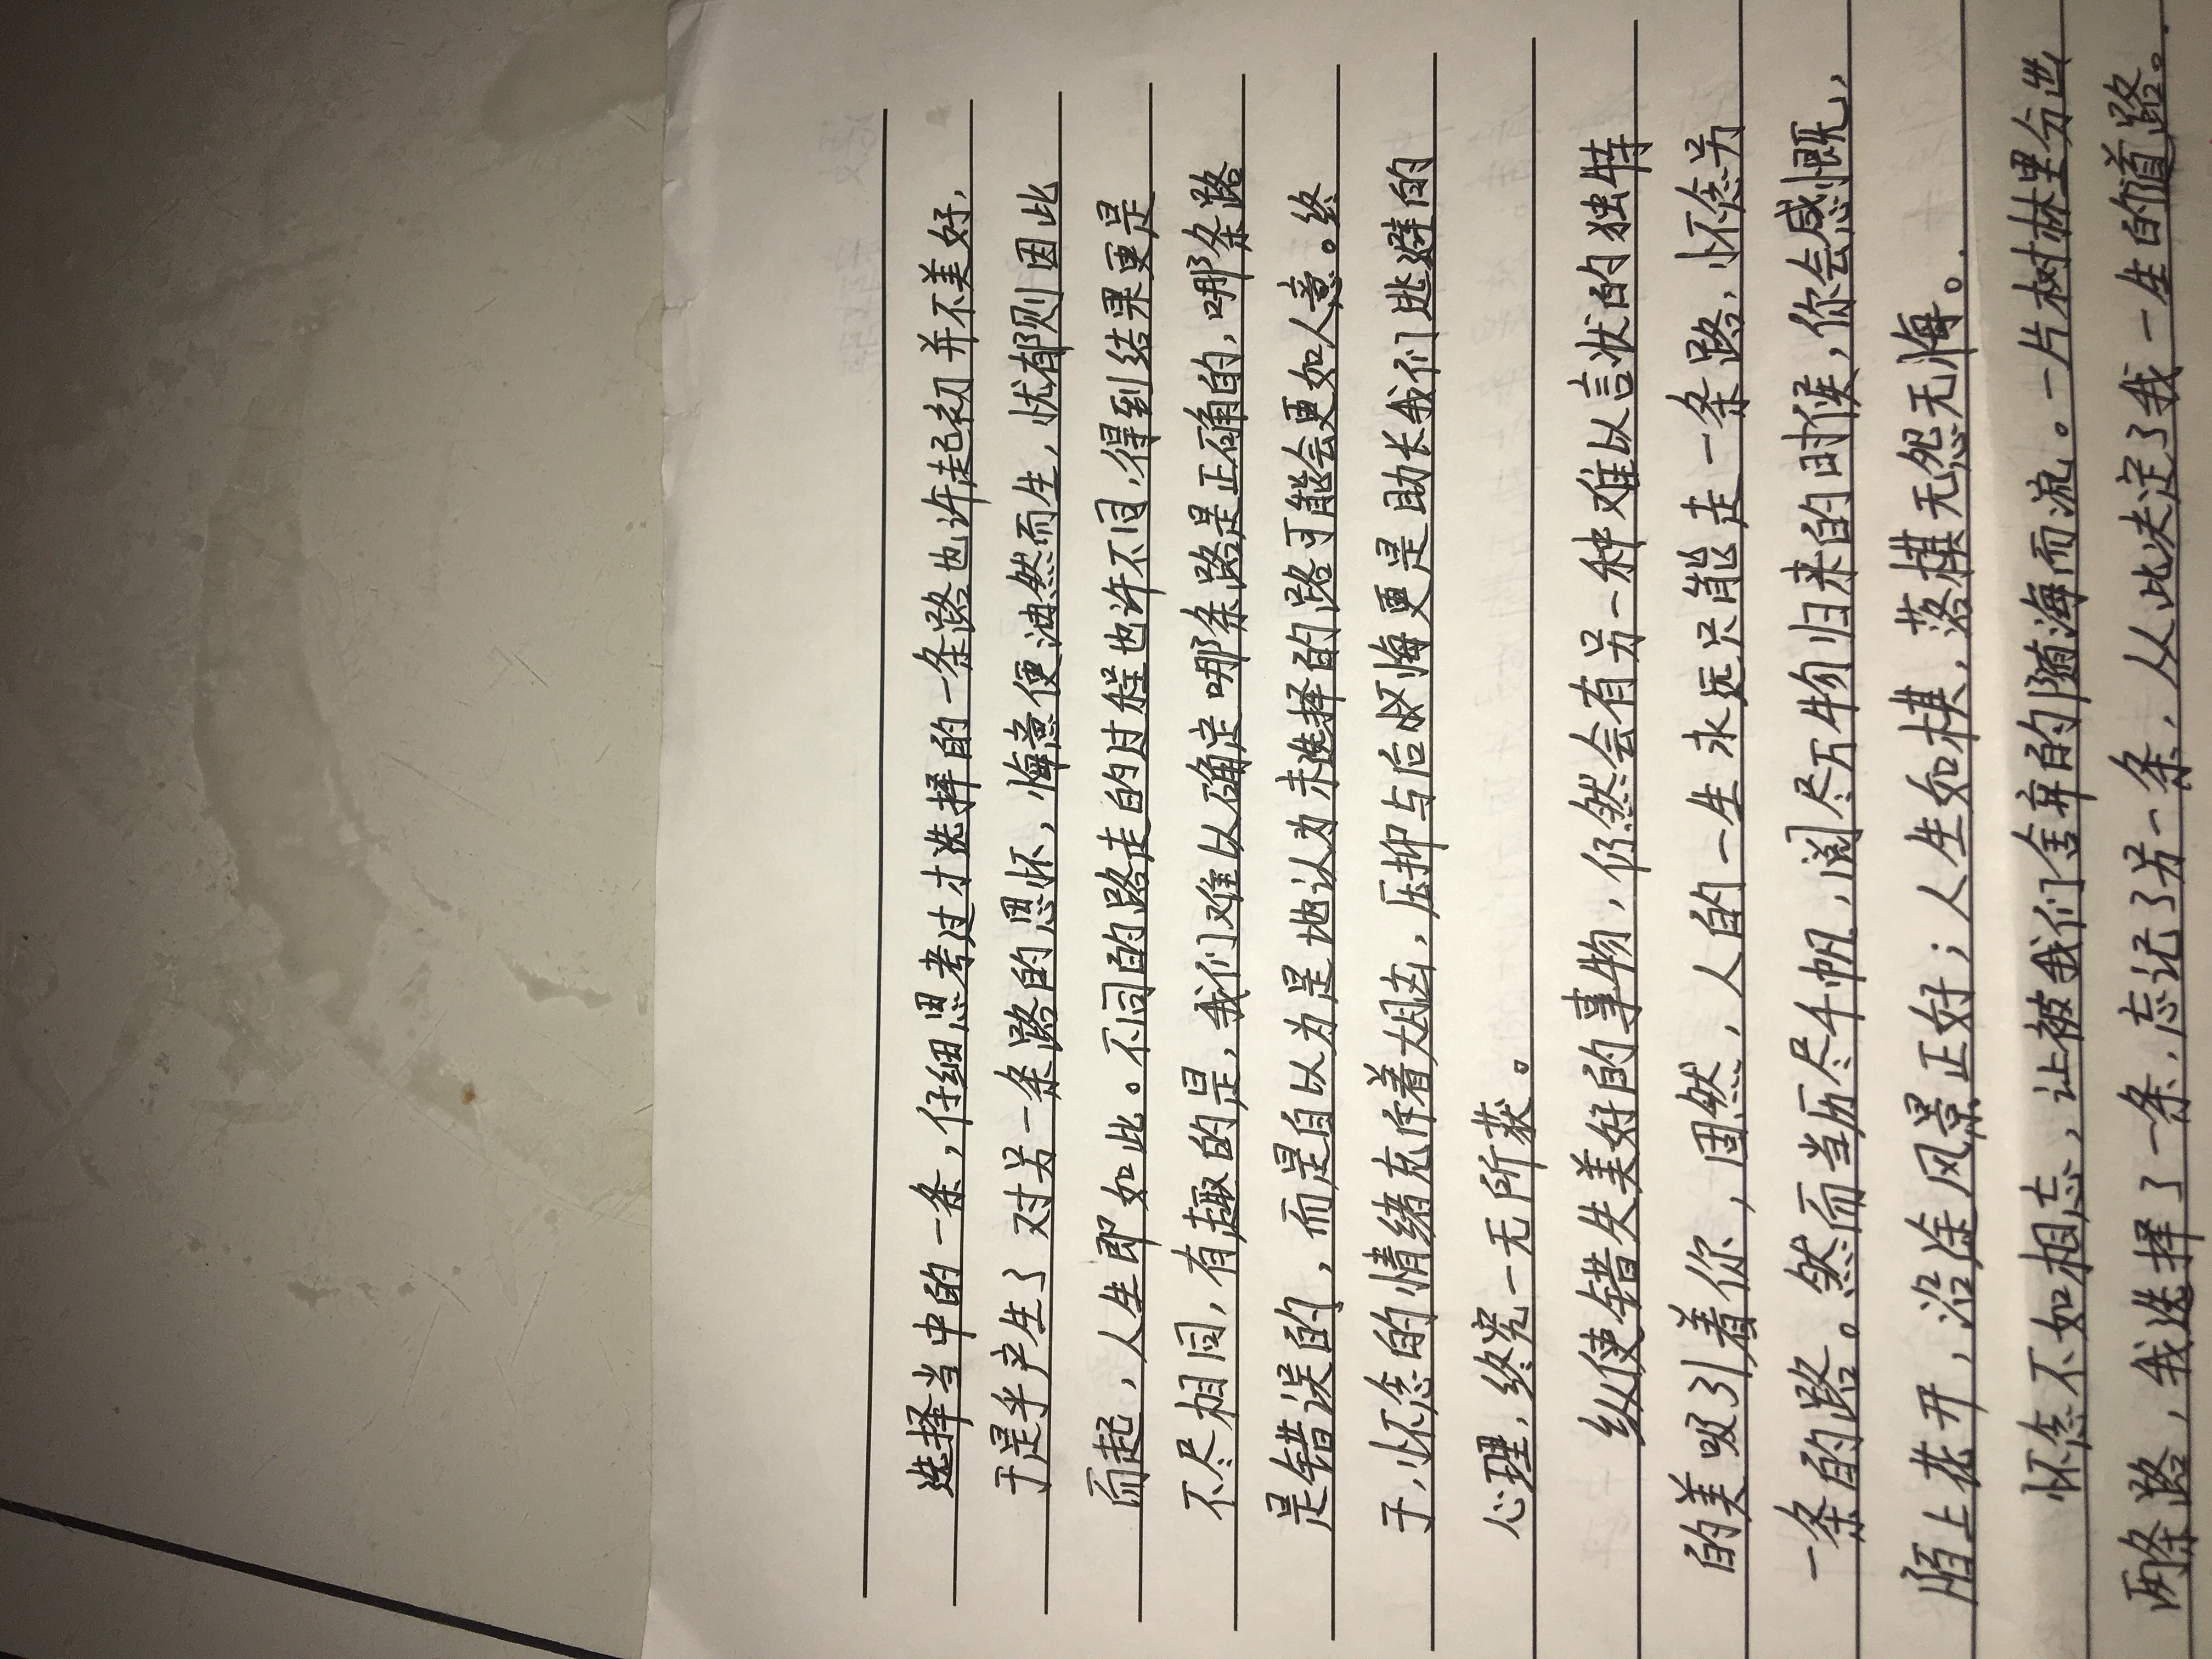 选择当中的一条，仔细思考过才选择的一条路也许起初并不美好，
于是乎产生了对另一条路的思怀，悔意便油然而生，忧郁则因此
而起，人生即如此。不同的路走的过程也许不同，得到结果更是
不尽相同，有趣的是，我们难以确定哪条路是正确的，哪条路
是错误的，而是自以为是地认为未选择的路可能会更如人意。终
于，怀念的情绪充斥着大脑，压抑与后悔更是助长我们逃避的
心理，终究一无所获。
纵使错失美好的事物，仍然会有另一种难以言状的独特
的美吸引着你，固然，人的一生永远只能走一条路，怀念另
一条的路。然而当历尽千帆，阅尽万物归来的时候，你会感慨，
陌上花开，沿途风景正好；人生如棋，落棋无怨无悔。
怀念不如相忘，让被我们舍弃的随海而流。一片树林里分出
两条路，我选择了一条，忘记了另一条，从此决定了我一生的道路。